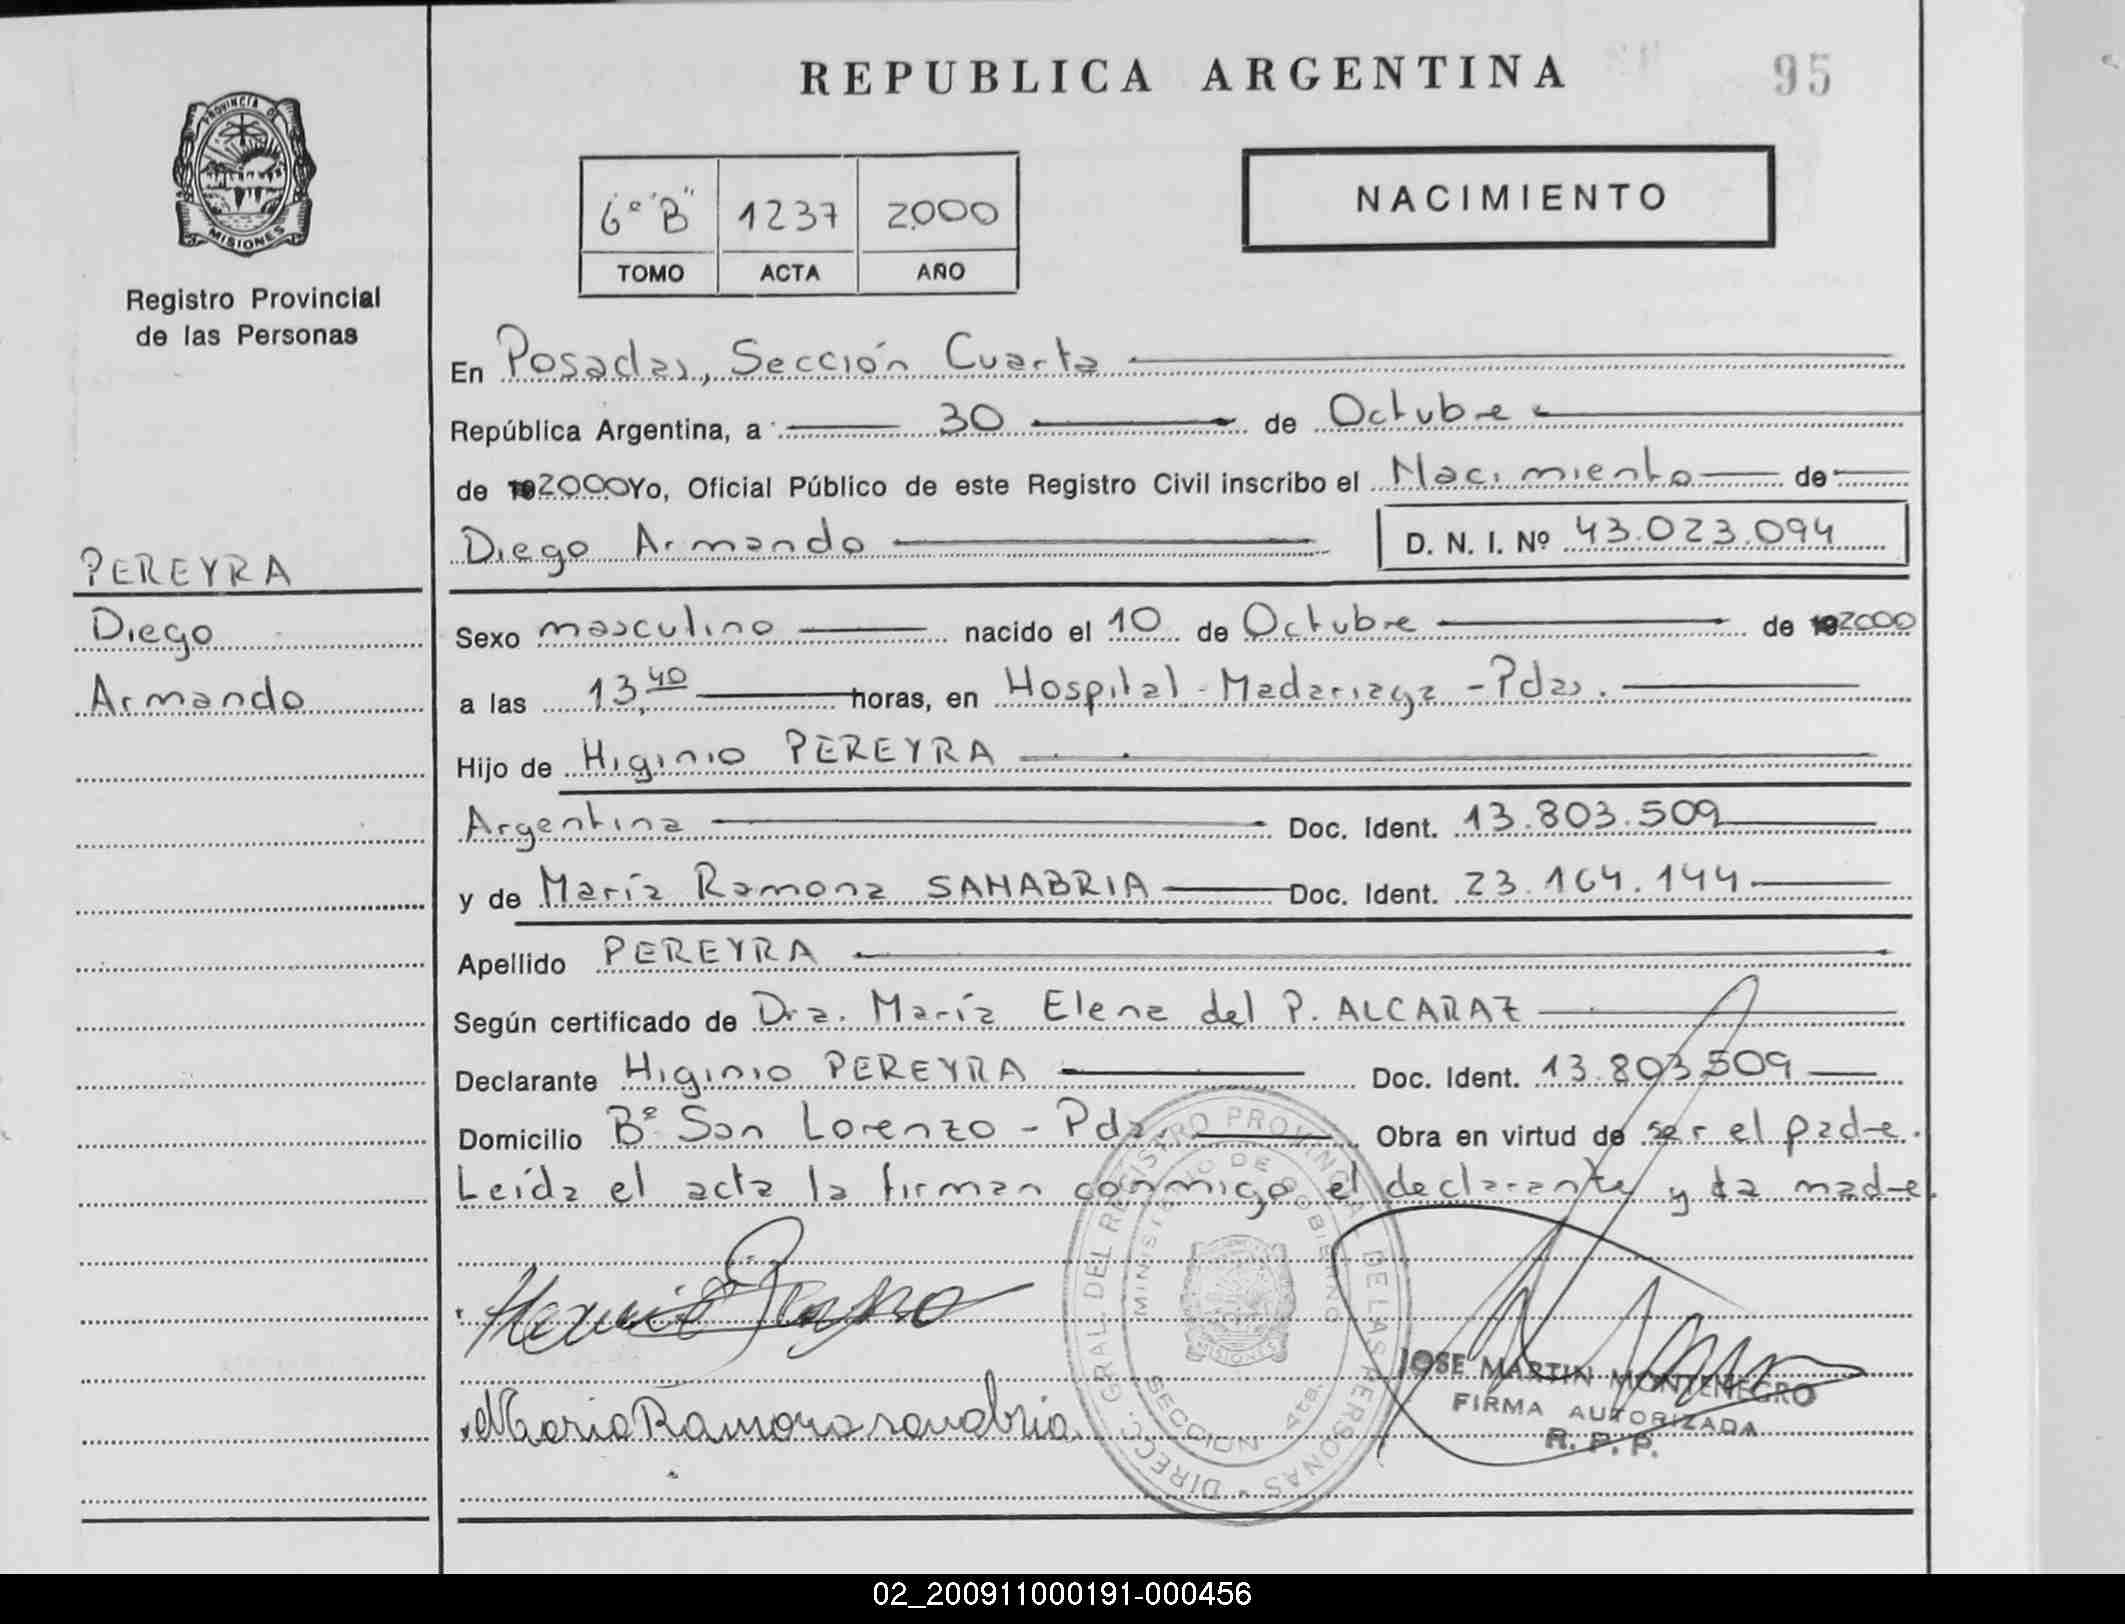 REPUBLICA ARGENTINA
95
PROVINCIA DE
MISIONES
Registro Provincial
de las Personas
6º "B" 1237 2000
TOMO ACTA AÑO
NACIMIENTO
En Posadas, Sección Cuarta
República Argentina, a 30 de Octubre
de 192000 Yo, Oficial Público de este Registro Civil inscribo el Nacimiento de
Diego Armando D. N. I. Nº 43.023.094
PEREYRA
Diego
Armando
Sexo masculino nacido el 10 de Octubre de 192000
a las 13,40 horas, en Hospital - Madariaga - Pdas.
Hijo de Higinio PEREYRA
Argentina Doc. Ident. 13.803.509
y de María Ramona SANABRIA Doc. Ident. 23.164.144
Apellido PEREYRA
Según certificado de Dra. María Elena del P. ALCARAZ
Declarante Higinio PEREYRA Doc. Ident. 13.803.509
Domicilio Bº San Lorenzo - Pdas. Obra en virtud de ser el padre.
Leída el acta la firman conmigo el declarante y la madre.
Maria Ramona sanabria
DIRECC. GRAL. DEL REGISTRO PROVINCIAL DE LAS PERSONAS
MINISTERIO DE GOBIERNO
MISIONES
SECCION 4ta.
JOSE MARTIN MONTENEGRO
FIRMA AUTORIZADA
R. P. P.
02_200911000191-000456